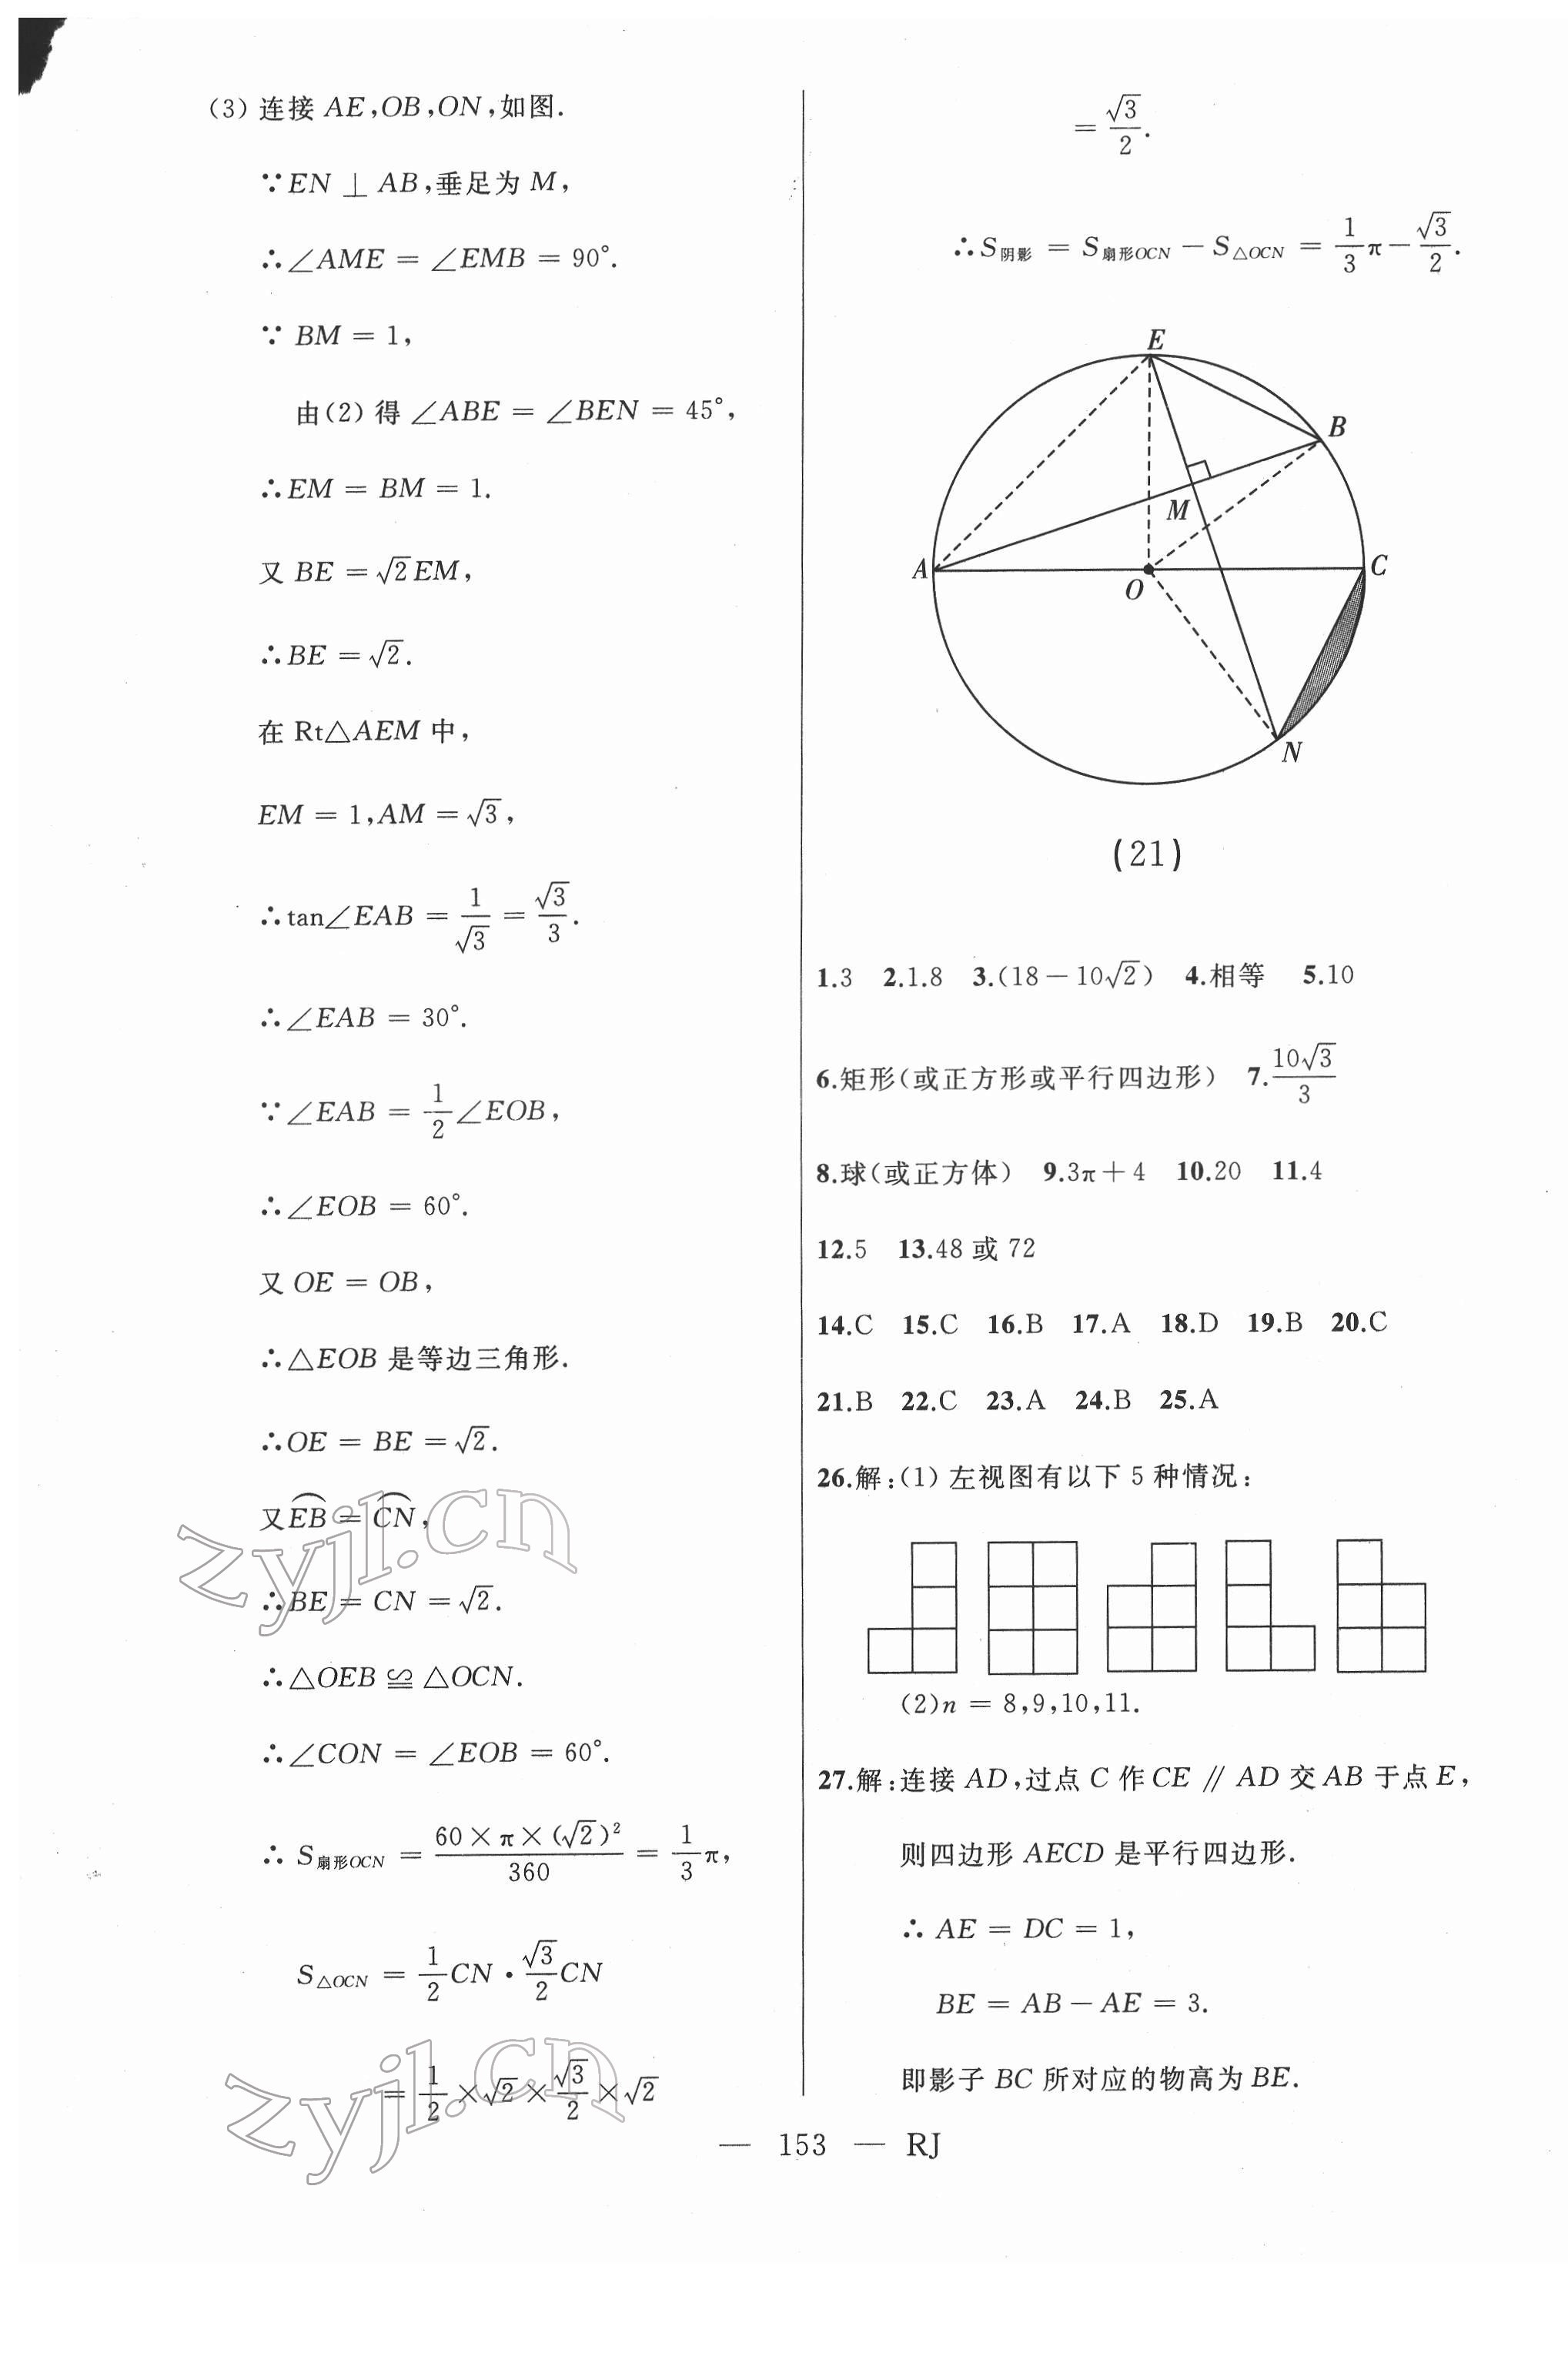 (3) 连接 AE,OB,ON,如图.
∵EN ⊥ AB,垂足为 M,
∴∠AME = ∠EMB = 90°.
∵ BM = 1,
由(2) 得 ∠ABE = ∠BEN = 45°,
∴EM = BM = 1.
又 BE = √2EM,
∴BE = √2.
在 Rt△AEM 中,
EM = 1,AM = √3,
∴tan∠EAB = 1/√3 = √3/3.
∴∠EAB = 30°.
∵∠EAB = 1/2∠EOB,
∴∠EOB = 60°.
又 OE = OB,
∴△EOB 是等边三角形.
∴OE = BE = √2.
又⌒EB = ⌒CN,
∴BE = CN = √2.
∴△OEB ≌ △OCN.
∴∠CON = ∠EOB = 60°.
∴ S扇形OCN = 60×π×(√2)²/360 = 1/3π,
S△OCN = 1/2CN · √3/2CN
= 1/2×√2×√3/2×√2
= √3/2.
∴S阴影 = S扇形OCN − S△OCN = 1/3π − √3/2.
E
B
M
A
O
C
N
(21)
1.3 2.1.8 3.(18−10√2) 4.相等 5.10
6.矩形(或正方形或平行四边形) 7.10√3/3
8.球(或正方体) 9.3π+4 10.20 11.4
12.5 13.48 或 72
14.C 15.C 16.B 17.A 18.D 19.B 20.C
21.B 22.C 23.A 24.B 25.A
26.解:(1) 左视图有以下 5 种情况:
(2)n = 8,9,10,11.
27.解:连接 AD,过点 C 作 CE ∥ AD 交 AB 于点 E,
则四边形 AECD 是平行四边形.
∴ AE = DC = 1,
BE = AB − AE = 3.
即影子 BC 所对应的物高为 BE.
zyjl.cn
zyjl.cn
— 153 — RJ